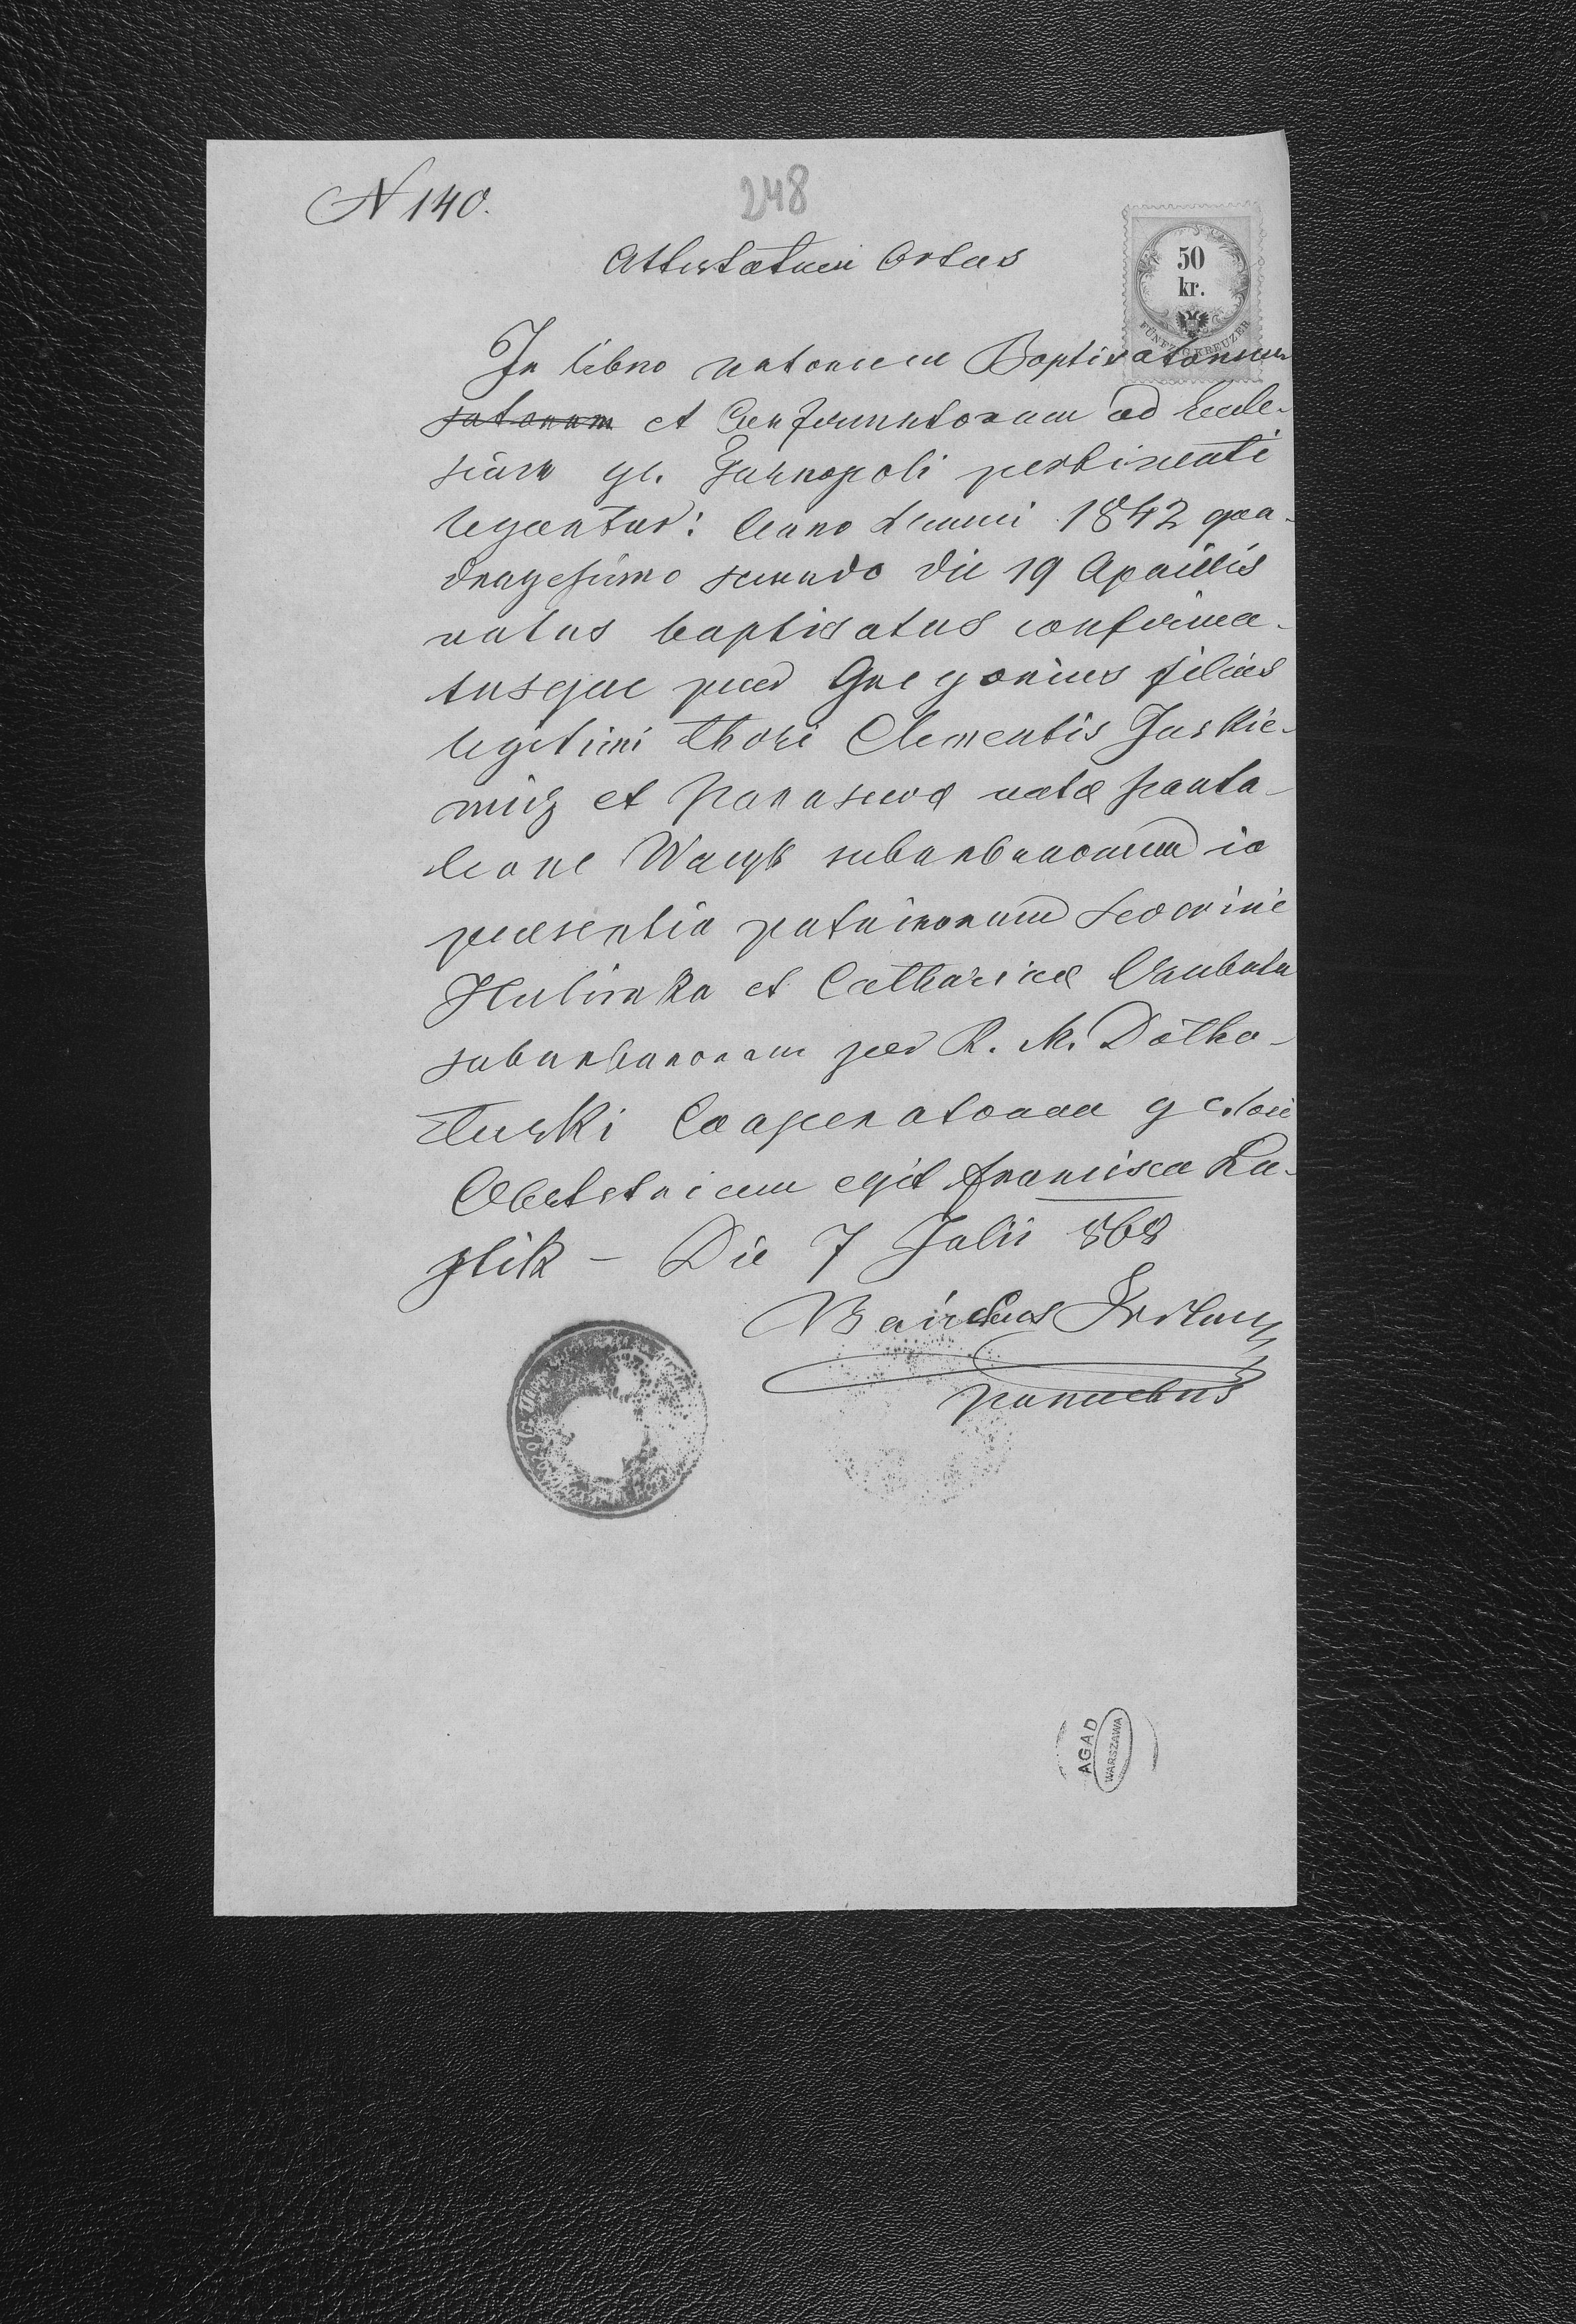 N 140.
248
Attestatum Ortus
50
kr.
FÜNFZIG KREUZER
In libro natorum Baptisatorum
satorum et Confirmatorum ad Eccle-
siam gr. Tarnopoli pertinenti
leguntur: Anno Domini 1842 qua-
dragesimo secundo die 19 Aprilis
natus baptisatus confirma-
tusque puer Gregorius filius
legitimi thori Clementis Juskie-
wicz et Parascewæ natæ Panta-
leone suburbanorum in
præsentia patrinorum Severini
Hulinka et Catharinæ
suburbanorum per R. M.
Cooperatorem
Obstetricem egit Francisca Ku-
plik - Die 7 Julii 868
parochus
AGAD
WARSZAWA